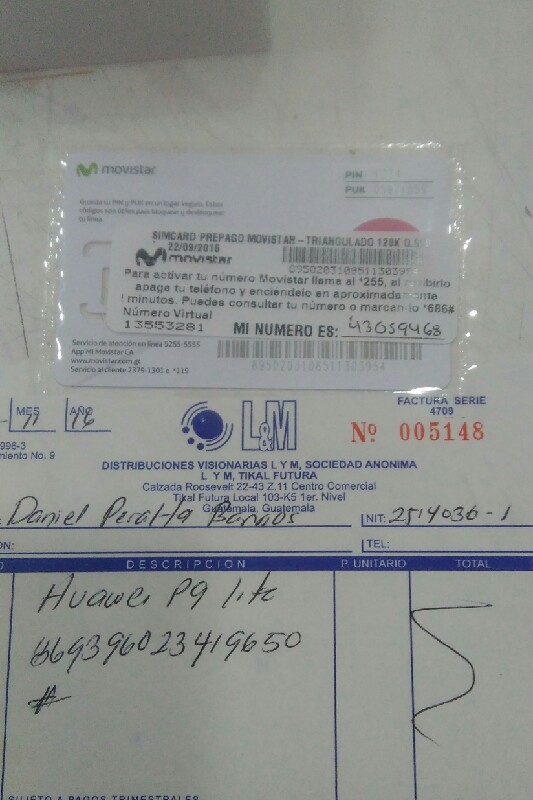 movistar
PIN
PUK
SIMCARD PREPAGO MOVISTAR - TRIANGULADO 128K 0.
22/09/2016
movistar
Para activar tu número Movistar llama al *255, al
apaga tu teléfono y enciéndelo en aproximadamente
minutos. Puedes consultar tu número o marcando *686#
Número Virtual
13553281 MI NUMERO ES: 43059468
Servicio de atención en línea 5255-5555
App Mi Movistar CA
www.movistar.com.gt
Servicio al cliente 2379-1301 o *119
8950203108511303964
MES 11 AÑO 16
L&M
FACTURA SERIE
4709
Nº 005148
DISTRIBUCIONES VISIONARIAS L Y M, SOCIEDAD ANONIMA
L Y M, TIKAL FUTURA
Calzada Roosevelt 22-43 Z.11 Centro Comercial
Tikal Futura Local 103-K5 1er. Nivel
Guatemala, Guatemala
Daniel Peralta Barrios NIT: 2514036-1
ON: TEL:
DESCRIPCION P. UNITARIO TOTAL
Huawei P9 lite
869396023419650
#
SUJETO A PAGOS TRIMESTRALES